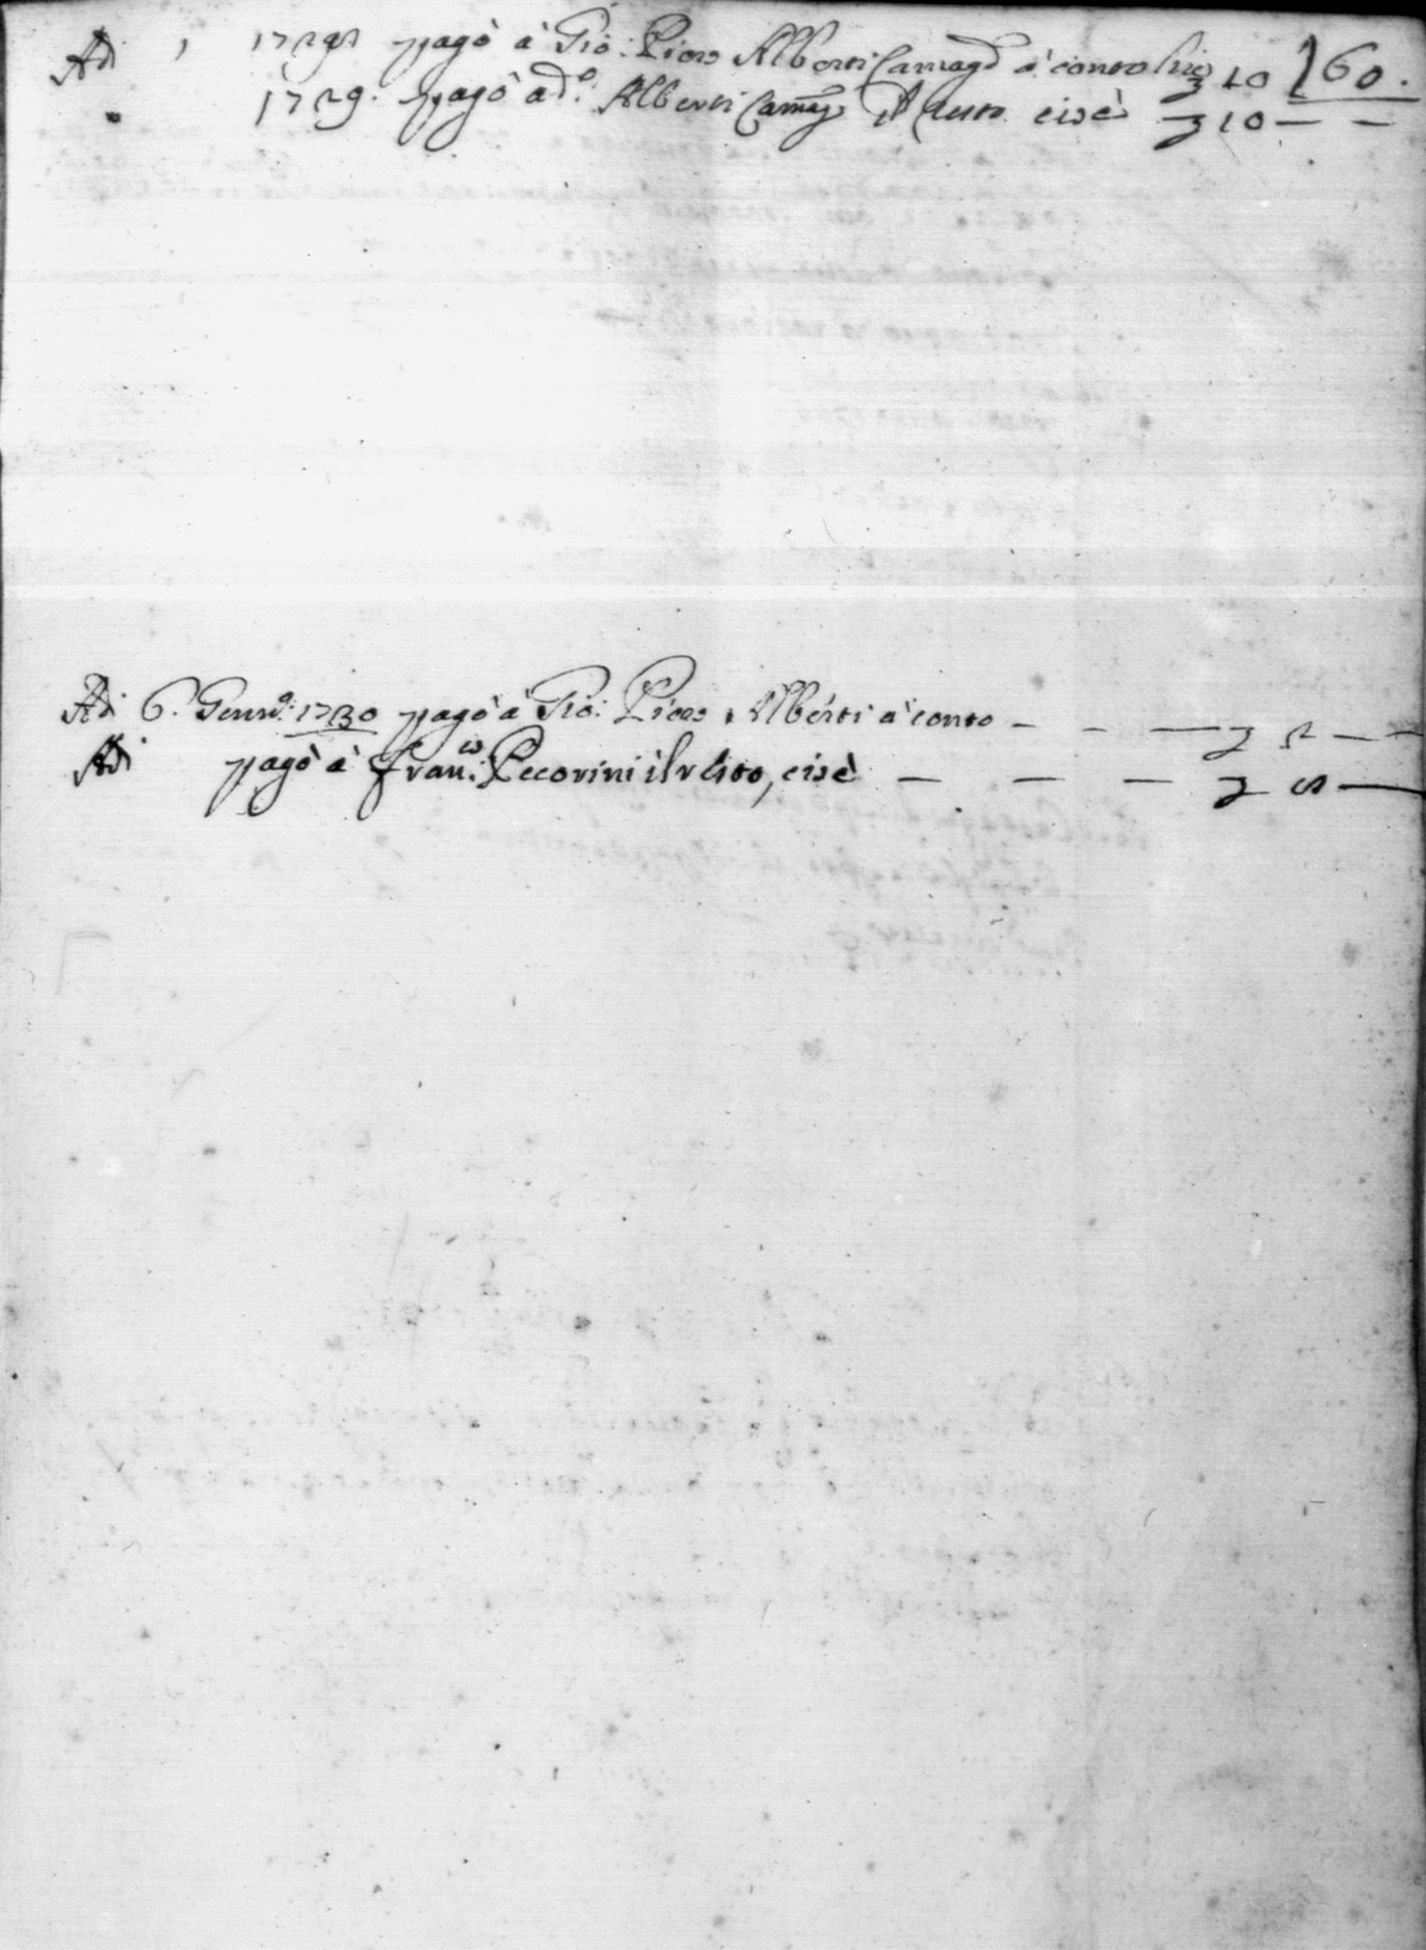 Adi 1729 pagò à Gio: Piero Alberti Camag.o à conto 10 60.
1729. pagò a d.o Alberti Camag.o cioè 10 — —
Adi 6. Genn.o: 1730 pagò à Gio: Piero Alberti à conto — — — 5 — —
Adi pagò à Fran.co: Pecorini il resto, cioè — — — 5 —